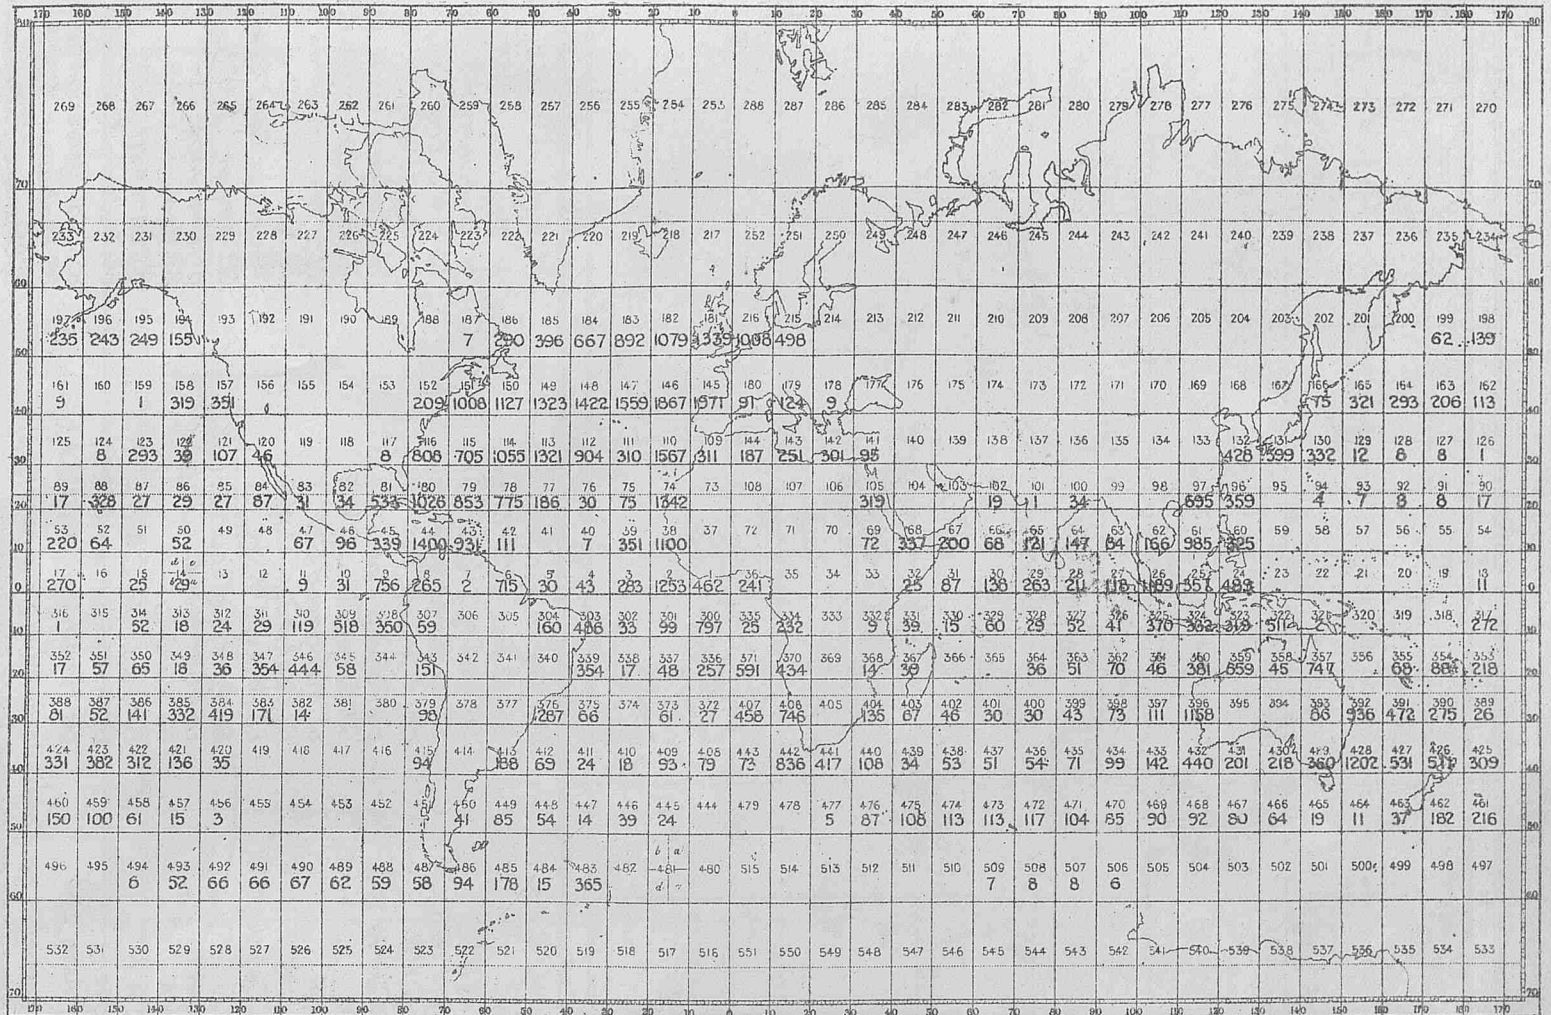 170 160 150 140 130 120 110 100 90 80 70 60 50 40 30 20 10 0 10 20 30 40 50 60 70 80 90 100 110 120 130 140 150 160 170 180 170
80 80
269 268 267 266 265 264 263 262 261 260 259 258 257 256 255 254 253 288 287 286 285 284 283 282 281 280 279 278 277 276 275 274 273 272 271 270
70 70
233 232 231 230 229 228 227 226 225 224 223 222 221 220 219 218 217 252 251 250 249 248 247 246 245 244 243 242 241 240 239 238 237 236 235 234
60 60
197 196 195 194 193 192 191 190 189 188 187 186 185 184 183 182 181 216 215 214 213 212 211 210 209 208 207 206 205 204 203 202 201 200 199 198
235 243 249 155 7 290 396 667 892 1079 1339 1008 498 62 139
50 50
161 160 159 158 157 156 155 154 153 152 151 150 149 148 147 146 145 180 179 178 177 176 175 174 173 172 171 170 169 168 167 166 165 164 163 162
9 1 319 351 209 1008 1127 1323 1422 1559 1867 1971 91 124 9 75 321 293 206 113
40 40
125 124 123 122 121 120 119 118 117 116 115 114 113 112 111 110 109 144 143 142 141 140 139 138 137 136 135 134 133 132 131 130 129 128 127 126
8 293 39 107 46 8 808 705 1055 1321 904 310 1567 311 187 251 301 95 428 599 332 12 8 8 1
30 30
89 88 87 86 85 84 83 82 81 80 79 78 77 76 75 74 73 108 107 106 105 104 103 102 101 100 99 98 97 96 95 94 93 92 91 90
17 328 27 29 27 87 31 34 533 1026 853 775 186 30 75 1342 319 19 1 34 695 359 4 7 8 8 17
20 20
53 52 51 50 49 48 47 46 45 44 43 42 41 40 39 38 37 72 71 70 69 68 67 66 65 64 63 62 61 60 59 58 57 56 55 54
220 64 52 67 96 339 1400 931 111 7 351 1100 72 337 200 68 121 147 84 166 985 325
10 10
17 16 15 14 13 12 11 10 9 8 7 6 5 4 3 2 1 36 35 34 33 32 31 30 29 28 27 26 25 24 23 22 21 20 19 18
270 25 29 9 31 756 265 2 715 30 43 283 1253 462 241 25 87 138 263 211 118 1189 357 483 11
0 0
316 315 314 313 312 311 310 309 308 307 306 305 304 303 302 301 300 335 334 333 332 331 330 329 328 327 326 325 324 323 322 321 320 319 318 317
1 52 18 24 29 119 518 350 59 160 488 33 99 797 25 232 9 39 15 60 29 52 41 370 332 319 511 2 272
10 10
352 351 350 349 348 347 346 345 344 343 342 341 340 339 338 337 336 371 370 369 368 367 366 365 364 363 362 361 360 359 358 357 356 355 354 353
17 57 65 18 36 354 444 58 151 354 17 48 257 591 434 14 39 36 51 70 46 381 659 45 747 68 884 218
20 20
388 387 386 385 384 383 382 381 380 379 378 377 376 375 374 373 372 407 406 405 404 403 402 401 400 399 398 397 396 395 394 393 392 391 390 389
81 52 141 332 419 171 14 98 1287 66 61 27 458 746 135 67 46 30 30 43 73 111 1158 86 936 472 275 26
30 30
424 423 422 421 420 419 418 417 416 415 414 413 412 411 410 409 408 443 442 441 440 439 438 437 436 435 434 433 432 431 430 429 428 427 426 425
331 382 312 136 35 94 188 69 24 18 93 79 73 836 417 108 34 53 51 54 71 99 142 440 201 218 360 1202 531 511 309
40 40
460 459 458 457 456 455 454 453 452 451 450 449 448 447 446 445 444 479 478 477 476 475 474 473 472 471 470 469 468 467 466 465 464 463 462 461
150 100 61 15 3 41 85 54 14 39 24 5 87 108 113 113 117 104 85 90 92 80 64 19 11 37 182 216
50 50
b a
496 495 494 493 492 491 490 489 488 487 486 485 484 483 482 481 480 515 514 513 512 511 510 509 508 507 506 505 504 503 502 501 500 499 498 497
6 52 66 66 67 62 59 58 94 178 15 365 7 8 8 6
60 60
532 531 530 529 528 527 526 525 524 523 522 521 520 519 518 517 516 551 550 549 548 547 546 545 544 543 542 541 540 539 538 537 536 535 534 533
70 70
170 160 150 140 130 120 110 100 90 80 70 60 50 40 30 20 10 0 10 20 30 40 50 60 70 80 90 100 110 120 130 140 150 160 170 180 170